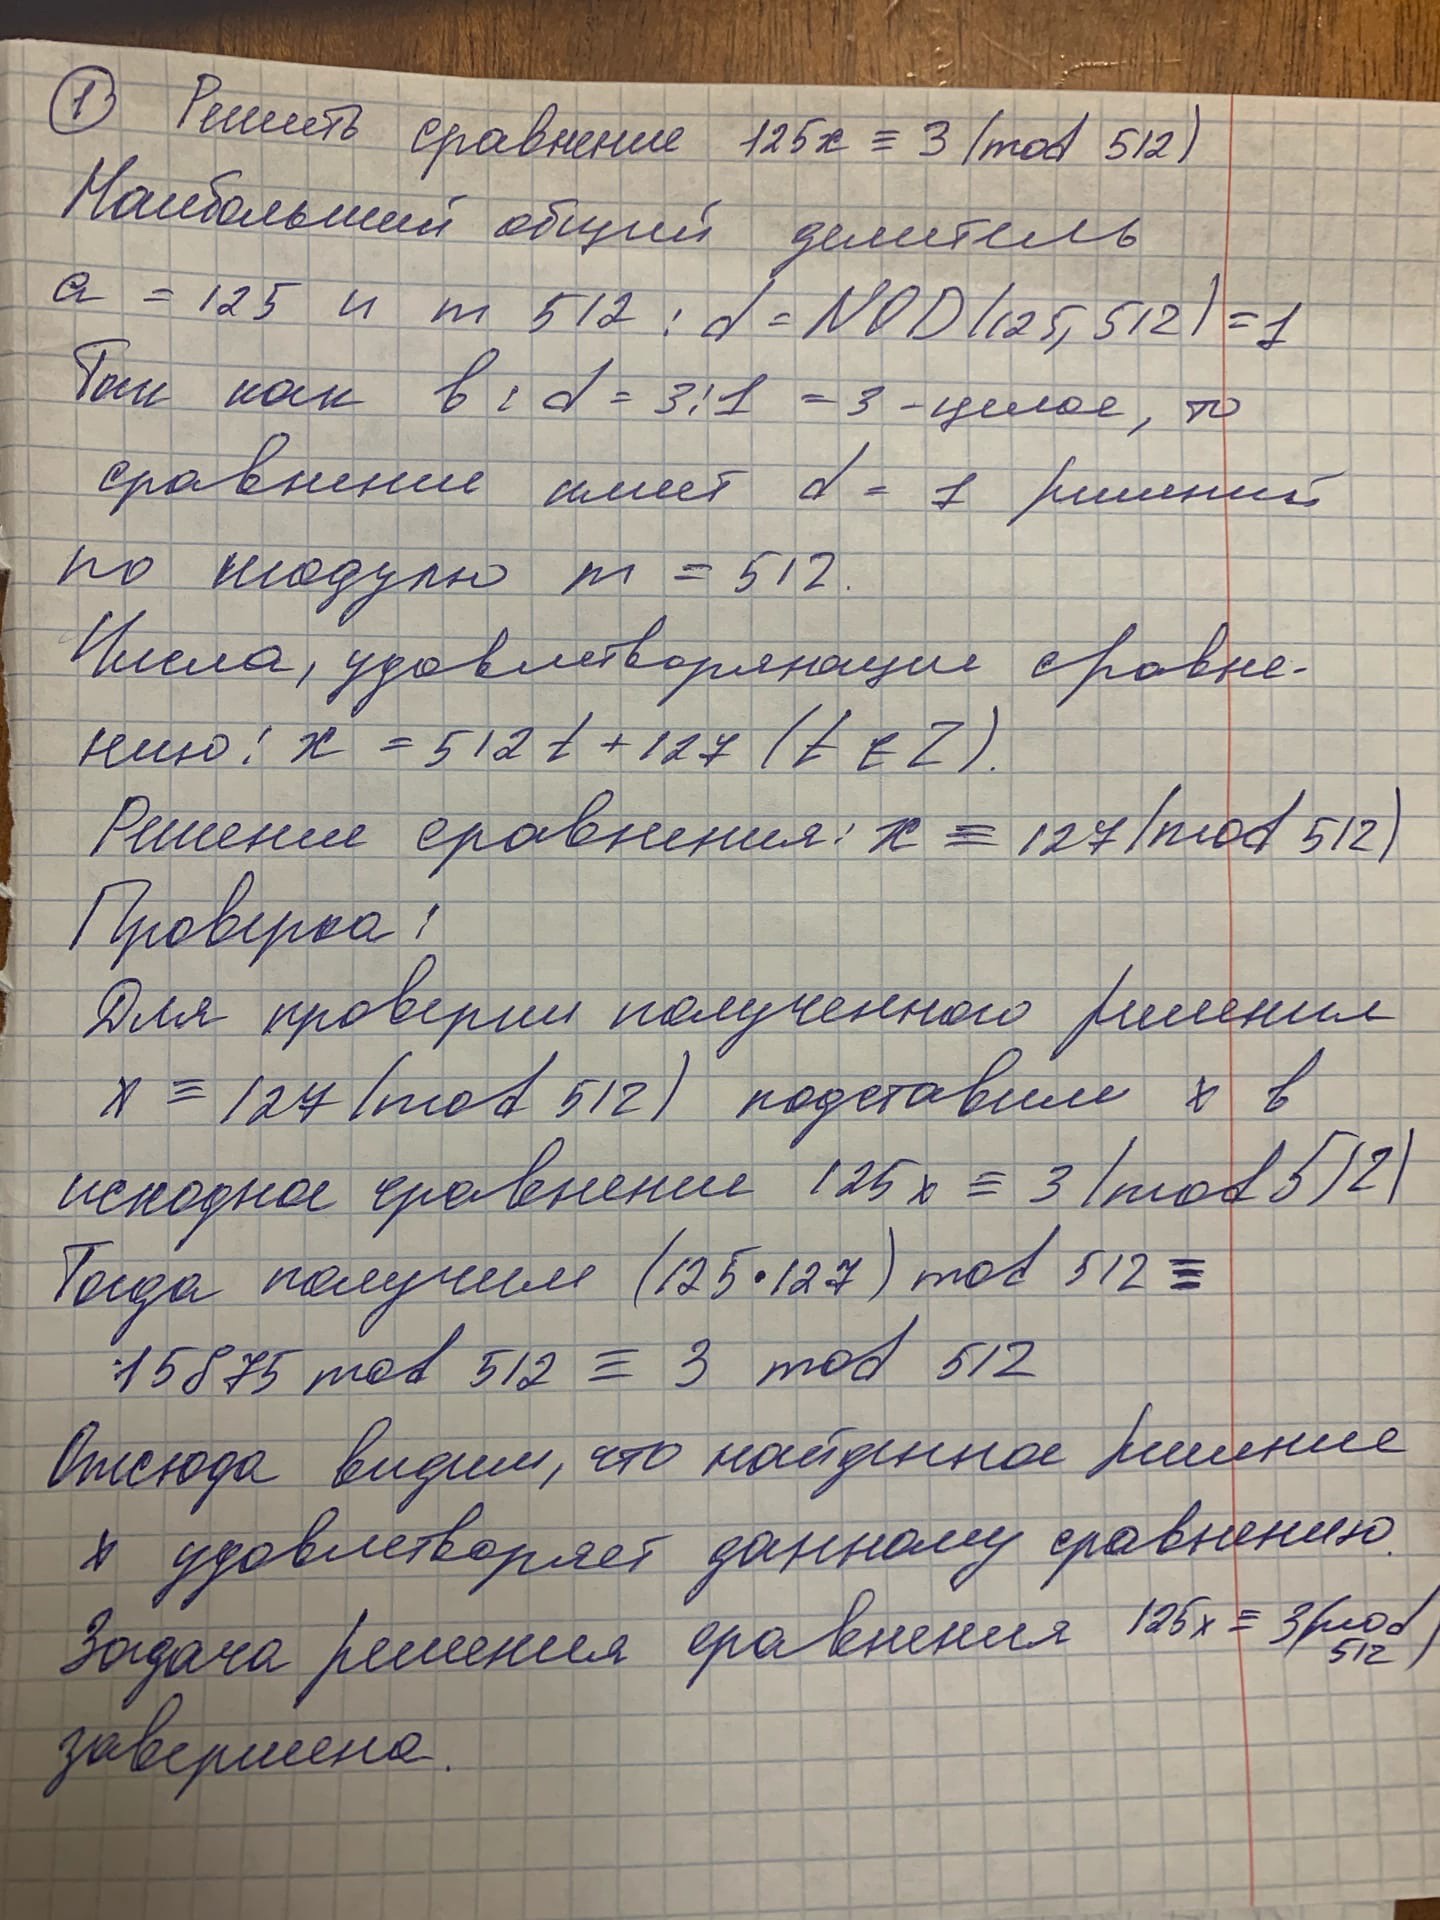 ① Решить сравнение 125x ≡ 3 (mod 512)
Наибольший общий делитель
a = 125 и m 512 : d = NOD(125, 512) = 1
Так как b : d = 3 : 1 = 3 - целое, то
сравнение имеет d = 1 решений
по модулю m = 512.
Числа, удовлетворяющие сравне-
нию: x = 512t + 127 (t ∈ Z).
Решение сравнения: x ≡ 127 (mod 512)
Проверка:
Для проверки полученного решения
x ≡ 127 (mod 512) подставим x в
исходное сравнение 125x ≡ 3 (mod 512)
Тогда получим (125 · 127) mod 512 ≡
15875 mod 512 ≡ 3 mod 512
Отсюда видим, что найденное решение
x удовлетворяет данному сравнению.
Задача решения сравнения 125x ≡ 3 (mod
512)
завершена.